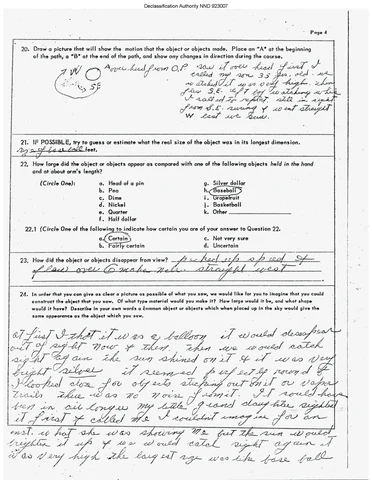 Declassification Authority NND 923007
Page 4
20. Draw a picture that will show the motion that the object or objects made. Place an "A" at the beginning
of the path, a "B" at the end of the path, and show any changes in direction during the course.
W
SE
A over hed from O.P. saw it over head first I
called my son 33 yrs. old we
watched it up very high, then
flew S.E. &
I called to
from S.E. & went straight
W
21. IF POSSIBLE, try to guess or estimate what the real size of the object was in its longest dimension.
feet.
22. How large did the object or objects appear as compared with one of the following objects held in the hand
and at about arm's length?
(Circle One):
a. Head of a pin
b. Pea
c. Dime
d. Nickel
e. Quarter
f. Half dollar
g. Silver dollar
h. Baseball
i. Grapefruit
j. Basketball
k. Other
22.1 (Circle One of the following to indicate how certain you are of your answer to Question 22.
a. Certain
b. Fairly certain
c. Not very sure
d. Uncertain
23. How did the object or objects disappear from view? picked up speed &
flew over straight west
24. In order that you can give as clear a picture as possible of what you saw, we would like for you to imagine that you could
construct the object that you saw. Of what type material would you make it? How large would it be, and what shape
would it have? Describe in your own words a common object or objects which when placed up in the sky would give the
same appearance as the object which you saw.
at first I thot it was a balloon it would disapear
out of sight now & then then we would catch
sight again the sun shined on it & it was very
bright silver it seemed prefectly round &
I looked close for objects sticking out on it or vapor
trails there was no noise from it. It could have
ben in air longer my little grand daughter sighted
it first & called me I couldn't imagine for an
inst. what she was showing me but the sun would
brighten it up & we would catch sight again it
was very high the largest size was like base ball